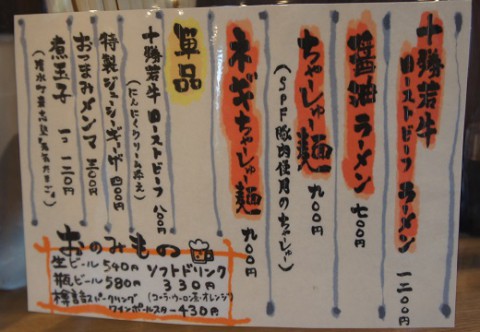 十勝若牛
ローストビーフラーメン 一二〇〇円
醤油ラーメン 七〇〇円
ちゃーしゅー麺 九〇〇円
(SPF豚肉使用のちゃーしゅー)
ネギちゃーしゅー麺 九〇〇円
単品
十勝若牛ローストビーフ 八〇〇円
(にんにくクリーム添え)
特製ジューシーギョーザ 四〇〇円
おつまみメンマ 三〇〇円
煮玉子 一コ 一二〇円
おのみもの
生ビール 540円
瓶ビール 580円
ソフトドリンク
330円
(コーラ・ウーロン茶・オレンジ)
スパークリング
ワインポールスター 430円